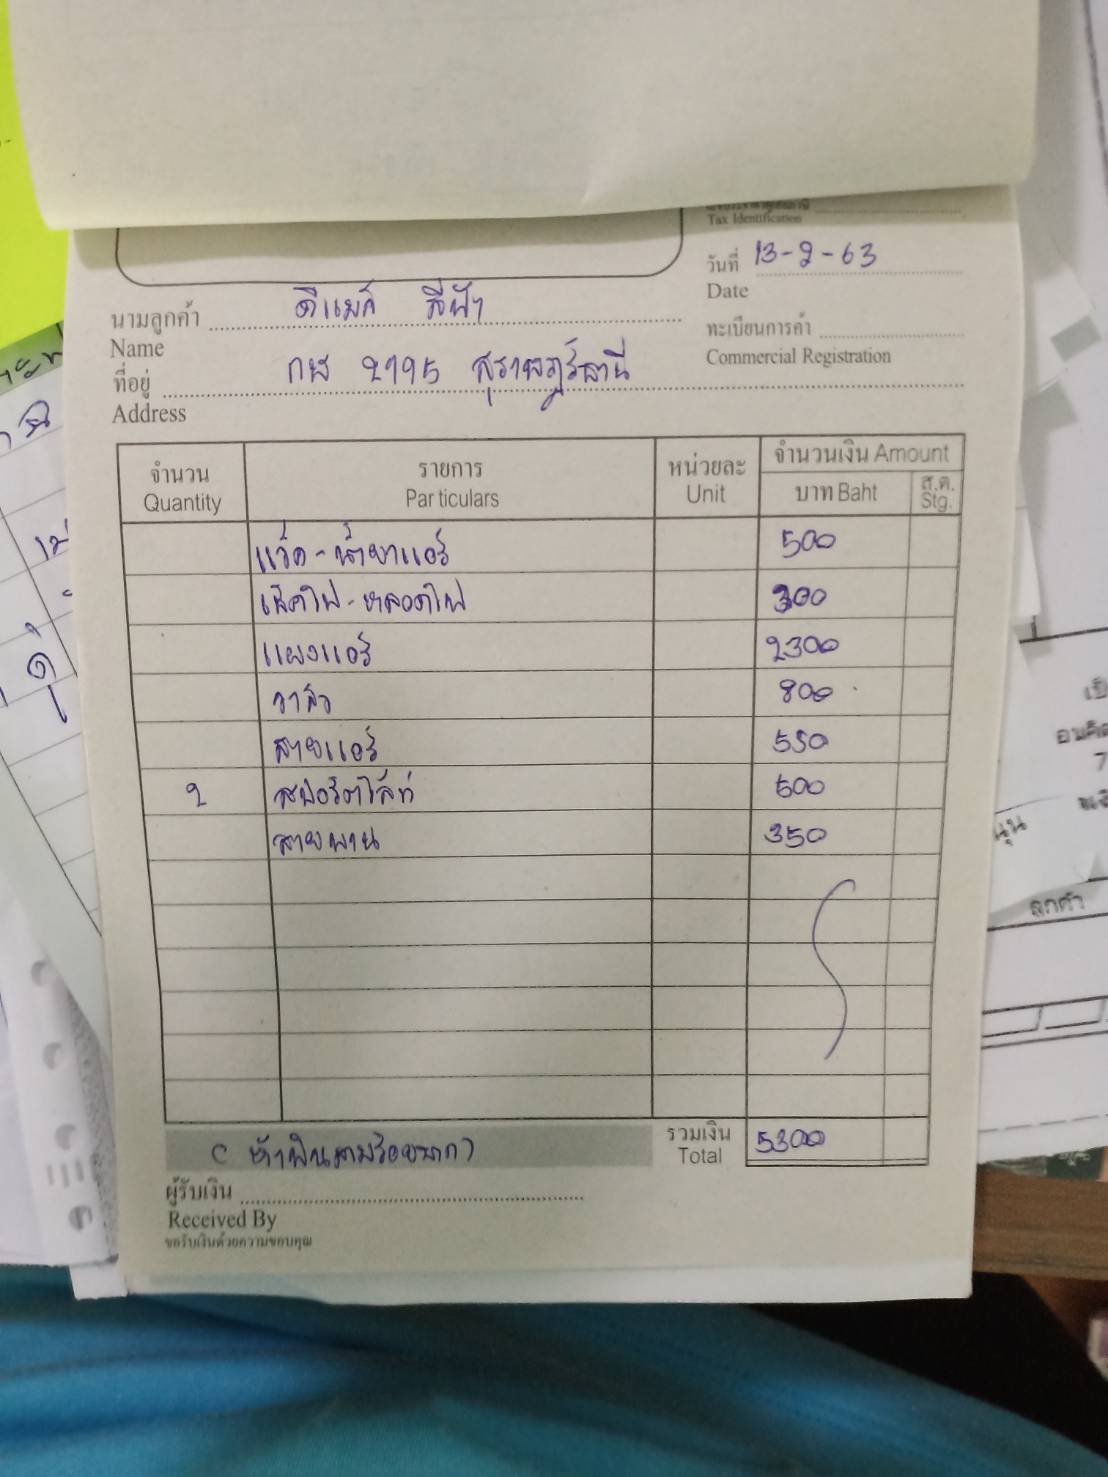 Tax Identification
วันที่ 13-2-63
Date
นามลูกค้า ดีแมก สีฟ้า
Name
ทะเบียนการค้า
Commercial Registration
ที่อยู่ กษ 2795 สุราษฎร์ธานี
Address
จำนวน รายการ หน่วยละ จำนวนเงิน Amount
Quantity Particulars Unit บาท Baht ส.ต. Stg.
แว็ค-น้ำยาแอร์ 500
เช็คไฟ-หลอดไฟ 300
แผงแอร์ 2300
วาล์ว 800
สายแอร์ 550
2 สปอร์ตไล้ท์ 500
สายพาน 350
(ห้าพันสามร้อยบาท) รวมเงิน 5300
Total
ผู้รับเงิน
Received By
ขอรับเงินด้วยความขอบคุณ
ลูกค้า